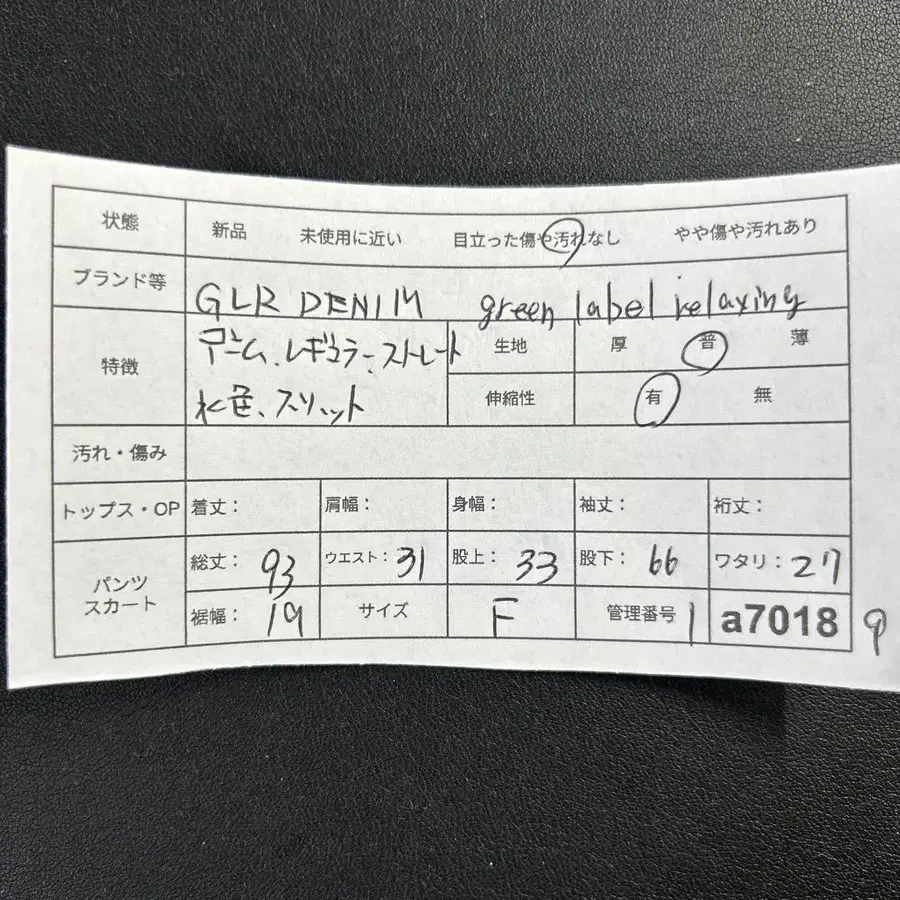 状態 新品 未使用に近い 目立った傷や汚れなし やや傷や汚れあり
ブランド等 GLR DENIM green label relaxing
特徴 デニム、レギュラー、ストレート 生地 厚 普 薄
水色、スリット 伸縮性 有 無
汚れ・傷み
トップス・OP 着丈: 肩幅: 身幅: 袖丈: 裄丈:
パンツ スカート 総丈: 93 ウエスト: 31 股上: 33 股下: 66 ワタリ: 27
裾幅: 19 サイズ F 管理番号 1 a7018 9